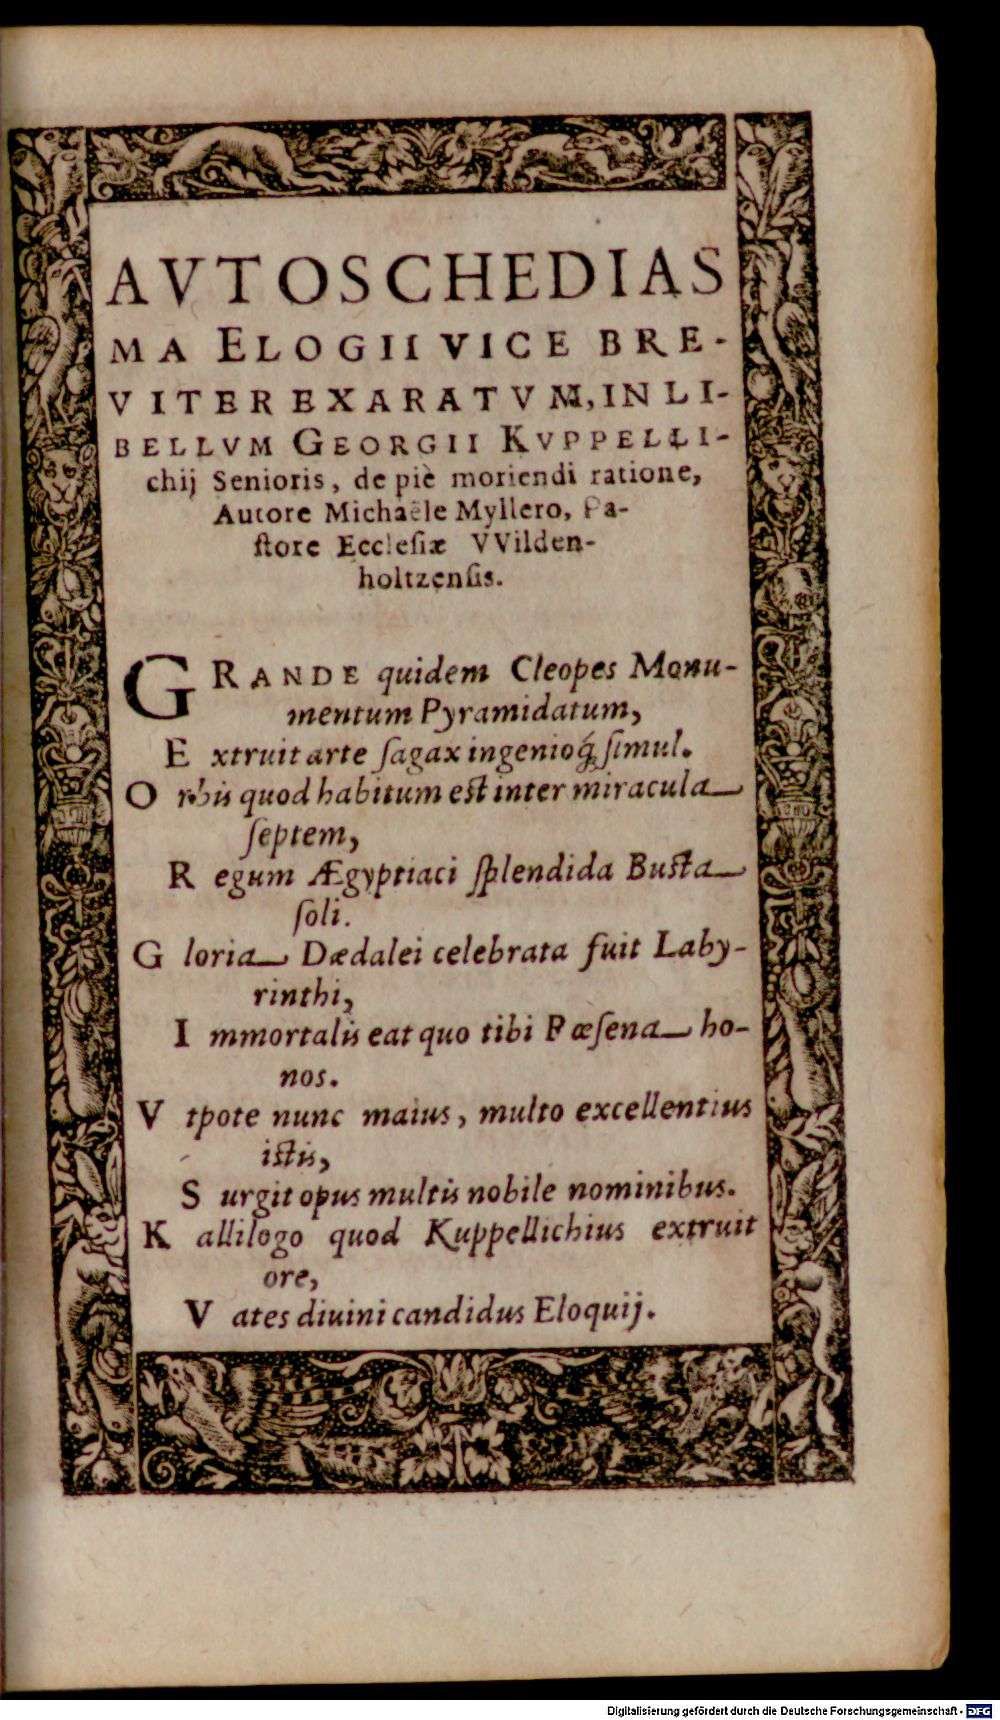 AVTOSCHEDIAS
MA ELOGII VICE BRE-
VITER EXARATVM, IN LI-
BELLVM GEORGII KVPPELLI-
chij Senioris, de piè moriendi ratione,
Autore Michaële Myllero, Pa-
ſtore Eccleſiæ VVilden-
holtzenſis.
GRANDE quidem Cleopes Monu-
mentum Pyramidatum,
Extruit arte ſagax ingenioq́; ſimul.
Orbis quod habitum est inter miracula
ſeptem,
Regum Ægyptiaci ſplendida Busta
ſoli.
Gloria Dædalei celebrata fuit Laby-
rinthi,
Immortalis eat quo tibi Pæſena ho-
nos.
Vtpote nunc maius, multo excellentius
istis,
Surgit opus multis nobile nominibus.
Kallilogo quod Kuppellichius extruit
ore,
Vates diuini candidus Eloquij.
Digitalisierung gefördert durch die Deutsche Forschungsgemeinschaft - DFG